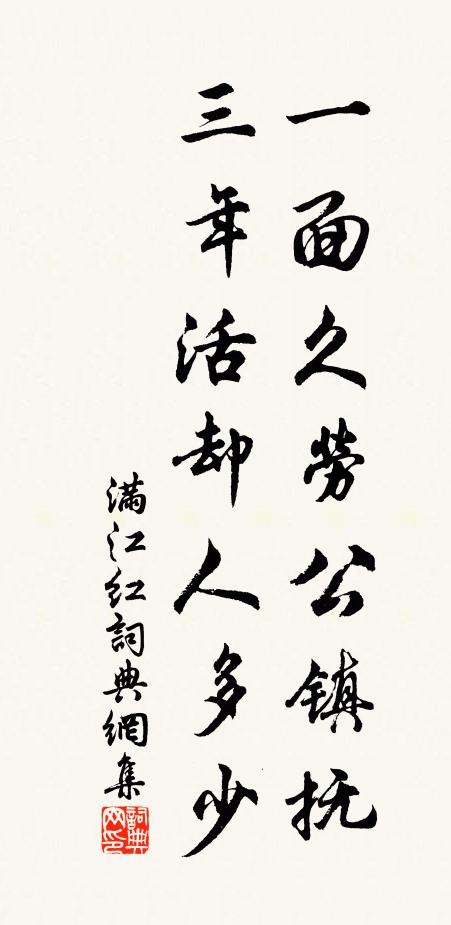 一面久劳公镇抚
三年活却人多少
满江红詞典網集
詞典网印